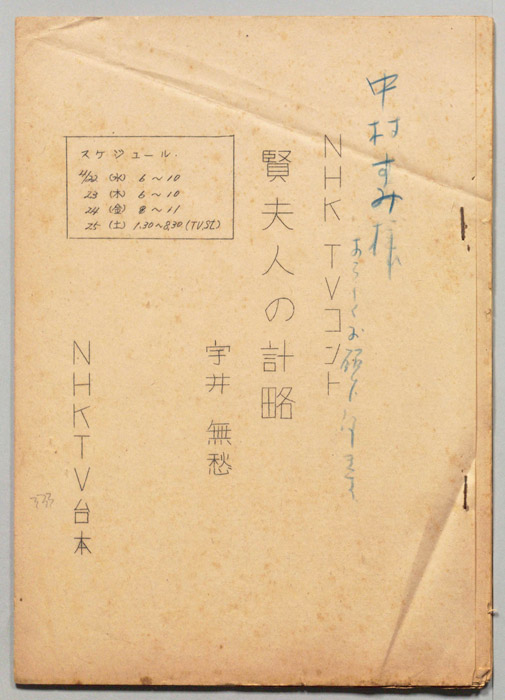 中村すみ様
よろしくお願ひ致します
NHK TVコント
賢夫人の計略
宇井 無愁
スケジュール.
4/22 (水) 6〜10
23 (木) 6〜10
24 (金) 8〜11
25 (土) 1.30〜8.30 (TV.St.)
NHKTV台本